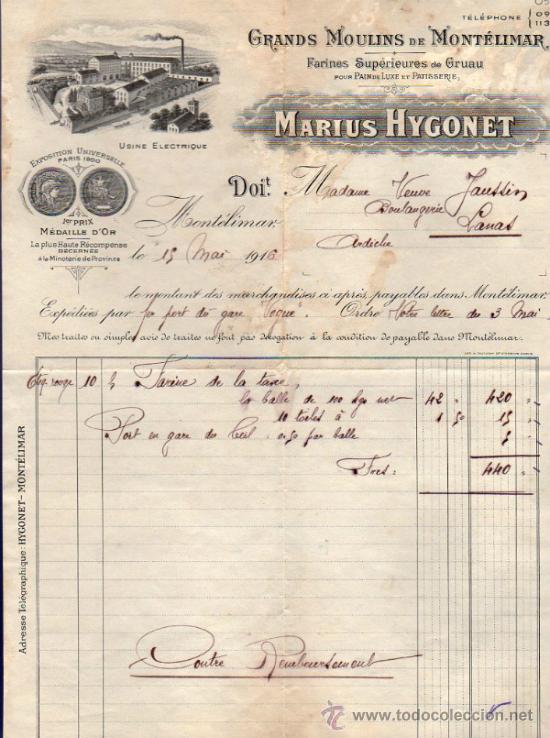 TÉLÉPHONE
GRANDS MOULINS DE MONTÉLIMAR,
Farines Supérieures de Gruau
POUR PAIN DE LUXE ET PATISSERIE,
MARIUS HYGONET
USINE ELECTRIQUE
EXPOSITION UNIVERSELLE
PARIS 1900
1er PRIX
MÉDAILLE D'OR
La plus Haute Récompense
DÉCERNÉE
à la Minoterie de Province
Doit Madame Veuve
Boulangerie
Lanas
Ardèche
Montélimar,
le 15 Mai 1916
le montant des marchandises ci après, payables dans Montélimar.
Expédiées par fer port dû gare Vogué Ordre Votre lettre du 3 Mai
Mes traites ou simples avis de traites ne font pas dérogation à la condition de payable dans Montélimar.
Etiq. rouge 10 b/ Farine de la taxe,
la balle de 100 kgs net 42 " 420 "
10 toiles à 1 50 15 "
Port en gare du Teil 0,50 par balle 5 "
Frcs: 440 "
Contre Remboursement
Adresse Télégraphique: HYGONET-MONTÉLIMAR
www.todocoleccion.net